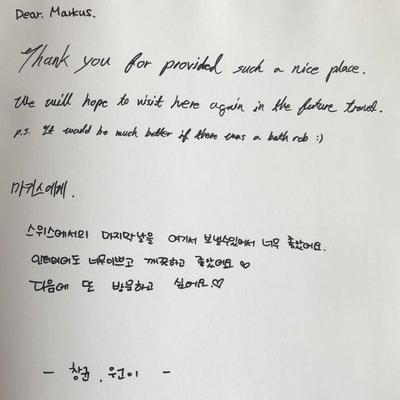 Dear. Markus.
Thank you for provided such a nice place.
We will hope to visit here again in the future travel.
p.s. It would be much better if there was a bath rob :)
마키스에게.
스위스에서의 마지막날을 여기서 보낼수있어서 너무 좋았어요.
인테리어도 너무이쁘고 깨끗하고 좋았어요 ♡
다음에 또 방문하고 싶어요.♡
- 창균, 우리 -